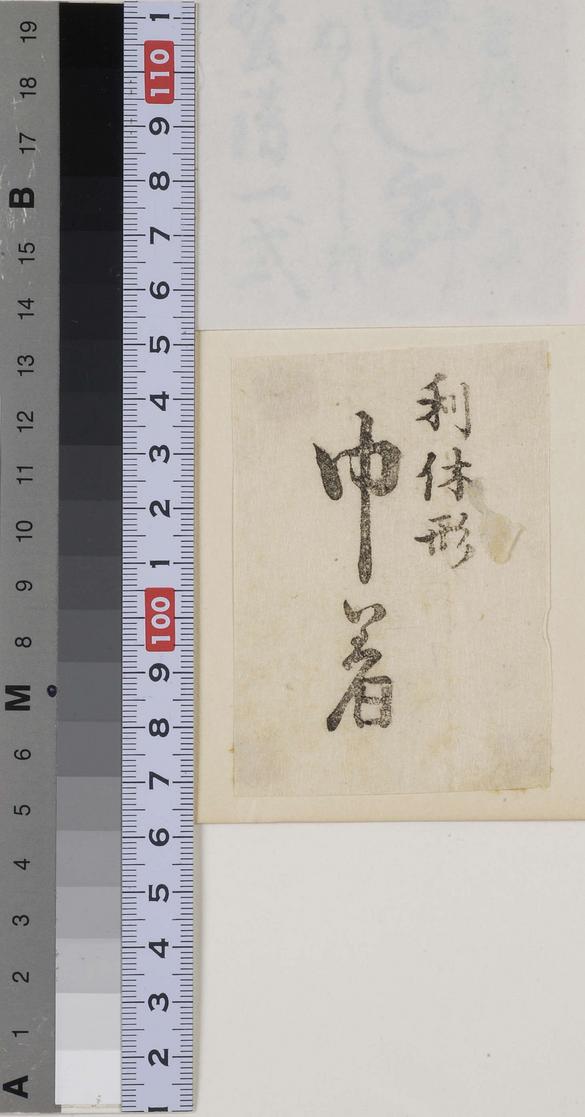 利休形
巾着
19
18
17
B
15
14
13
12
11
10
9
8
M
6
5
4
3
2
1
A
1
110
9
8
7
6
5
4
3
2
1
100
9
8
7
6
5
4
3
2